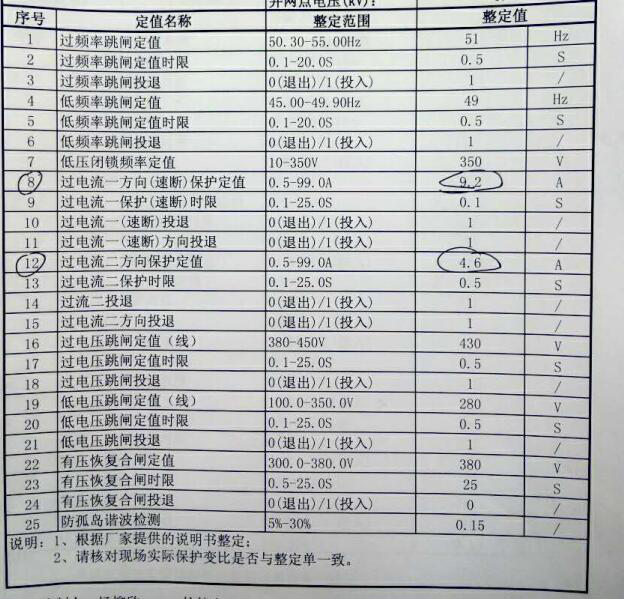 并网点电压(kV)：
序号 定值名称 整定范围 整定值
1 过频率跳闸定值 50.30-55.00Hz 51 Hz
2 过频率跳闸定值时限 0.1-20.0S 0.5 S
3 过频率跳闸投退 0(退出)/1(投入) 1 /
4 低频率跳闸定值 45.00-49.90Hz 49 Hz
5 低频率跳闸定值时限 0.1-20.0S 0.5 S
6 低频率跳闸投退 0(退出)/1(投入) 1 /
7 低压闭锁频率定值 10-350V 350 V
8 过电流一方向(速断)保护定值 0.5-99.0A 9.2 A
9 过电流一保护(速断)时限 0.1-25.0S 0.1 S
10 过电流一(速断)投退 0(退出)/1(投入) 1 /
11 过电流一(速断)方向投退 0(退出)/1(投入) 1 /
12 过电流二方向保护定值 0.5-99.0A 4.6 A
13 过电流二保护时限 0.1-25.0S 0.5 S
14 过流二投退 0(退出)/1(投入) 1 /
15 过电流二方向投退 0(退出)/1(投入) 1 /
16 过电压跳闸定值（线） 380-450V 430 V
17 过电压跳闸定值时限 0.1-25.0S 0.5 S
18 过电压跳闸投退 0(退出)/1(投入) 1 /
19 低电压跳闸定值（线） 100.0-350.0V 280 V
20 低电压跳闸定值时限 0.1-25.0S 0.5 S
21 低电压跳闸投退 0(退出)/1(投入) 1 /
22 有压恢复合闸定值 300.0-380.0V 380 V
23 有压恢复合闸时限 0.5-25.0S 25 S
24 有压恢复合闸投退 0(退出)/1(投入) 0 /
25 防孤岛谐波检测 5%-30% 0.15 /
说明：1、根据厂家提供的说明书整定；
2、请核对现场实际保护变比是否与整定单一致。